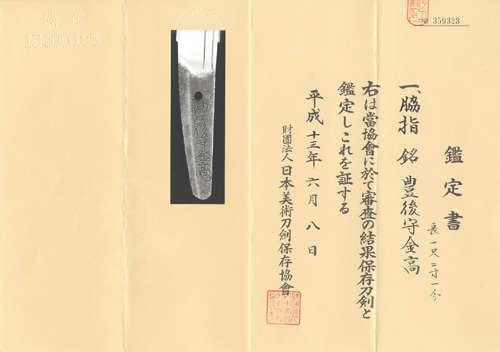 No 359323
鑑定書
一、脇指 銘 豊後守金高
長一尺二寸一分
右は當協會に於て審査の結果保存刀剣と
鑑定しこれを証する
平成十三年六月八日
財團法人 日本美術刀剣保存協會
豊後守金高